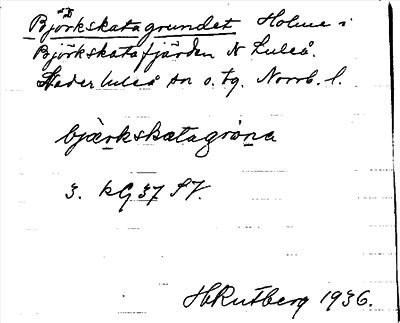 Björkskatagrundet Holme i
Björkskatafjärden N Luleå.
Nederluleå sn o. tg. Norrb. l.
bjærkskatagrona
3. kG 37 SV.
HRutberg 1936.